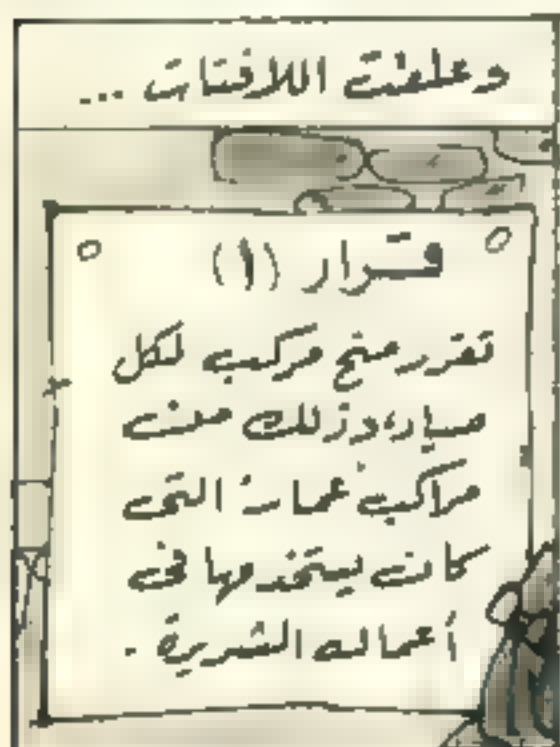 وعلقت اللافتات ...
قرار (١)
تقرر منح مركب لكل
صياد، وذلك من
مراكب عمارة التى
كان يستخدمها فى
أعماله الشريرة .